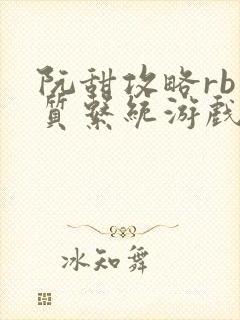 阮甜攻略rb
质系统游戏
冰知舞